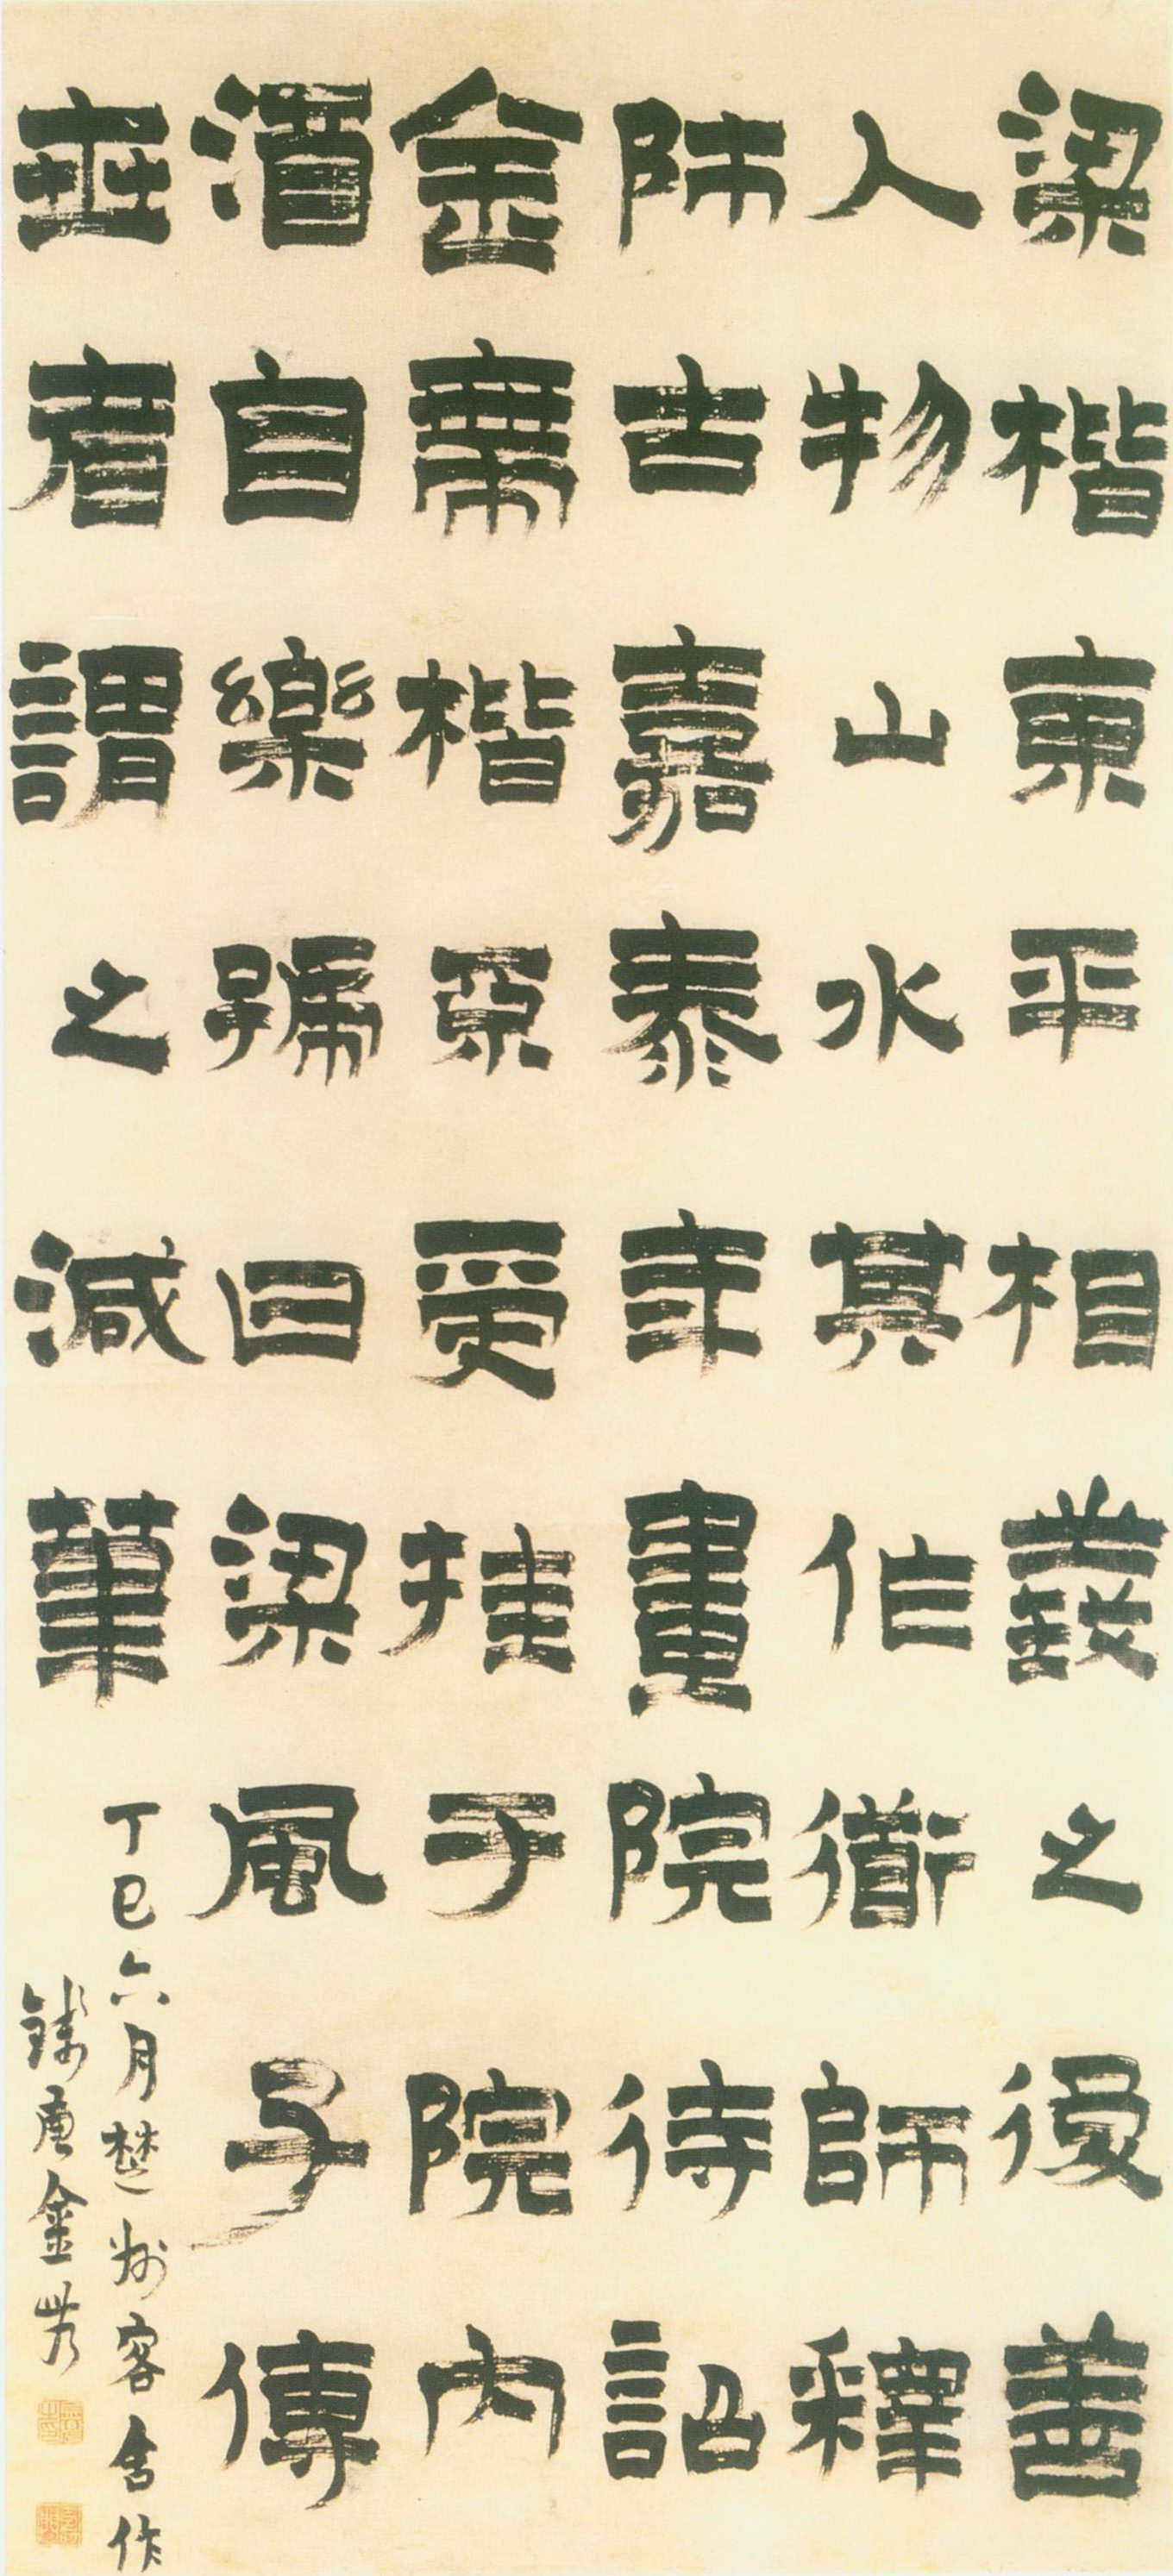 梁楷東平相義之後善
人物山水其作衟師釋
師古嘉泰年畫院待詔
金帶楷受挂于院内
酒自樂號曰梁風子傳
世者謂之減筆
丁巳六月楚州客舍作
錢唐金農